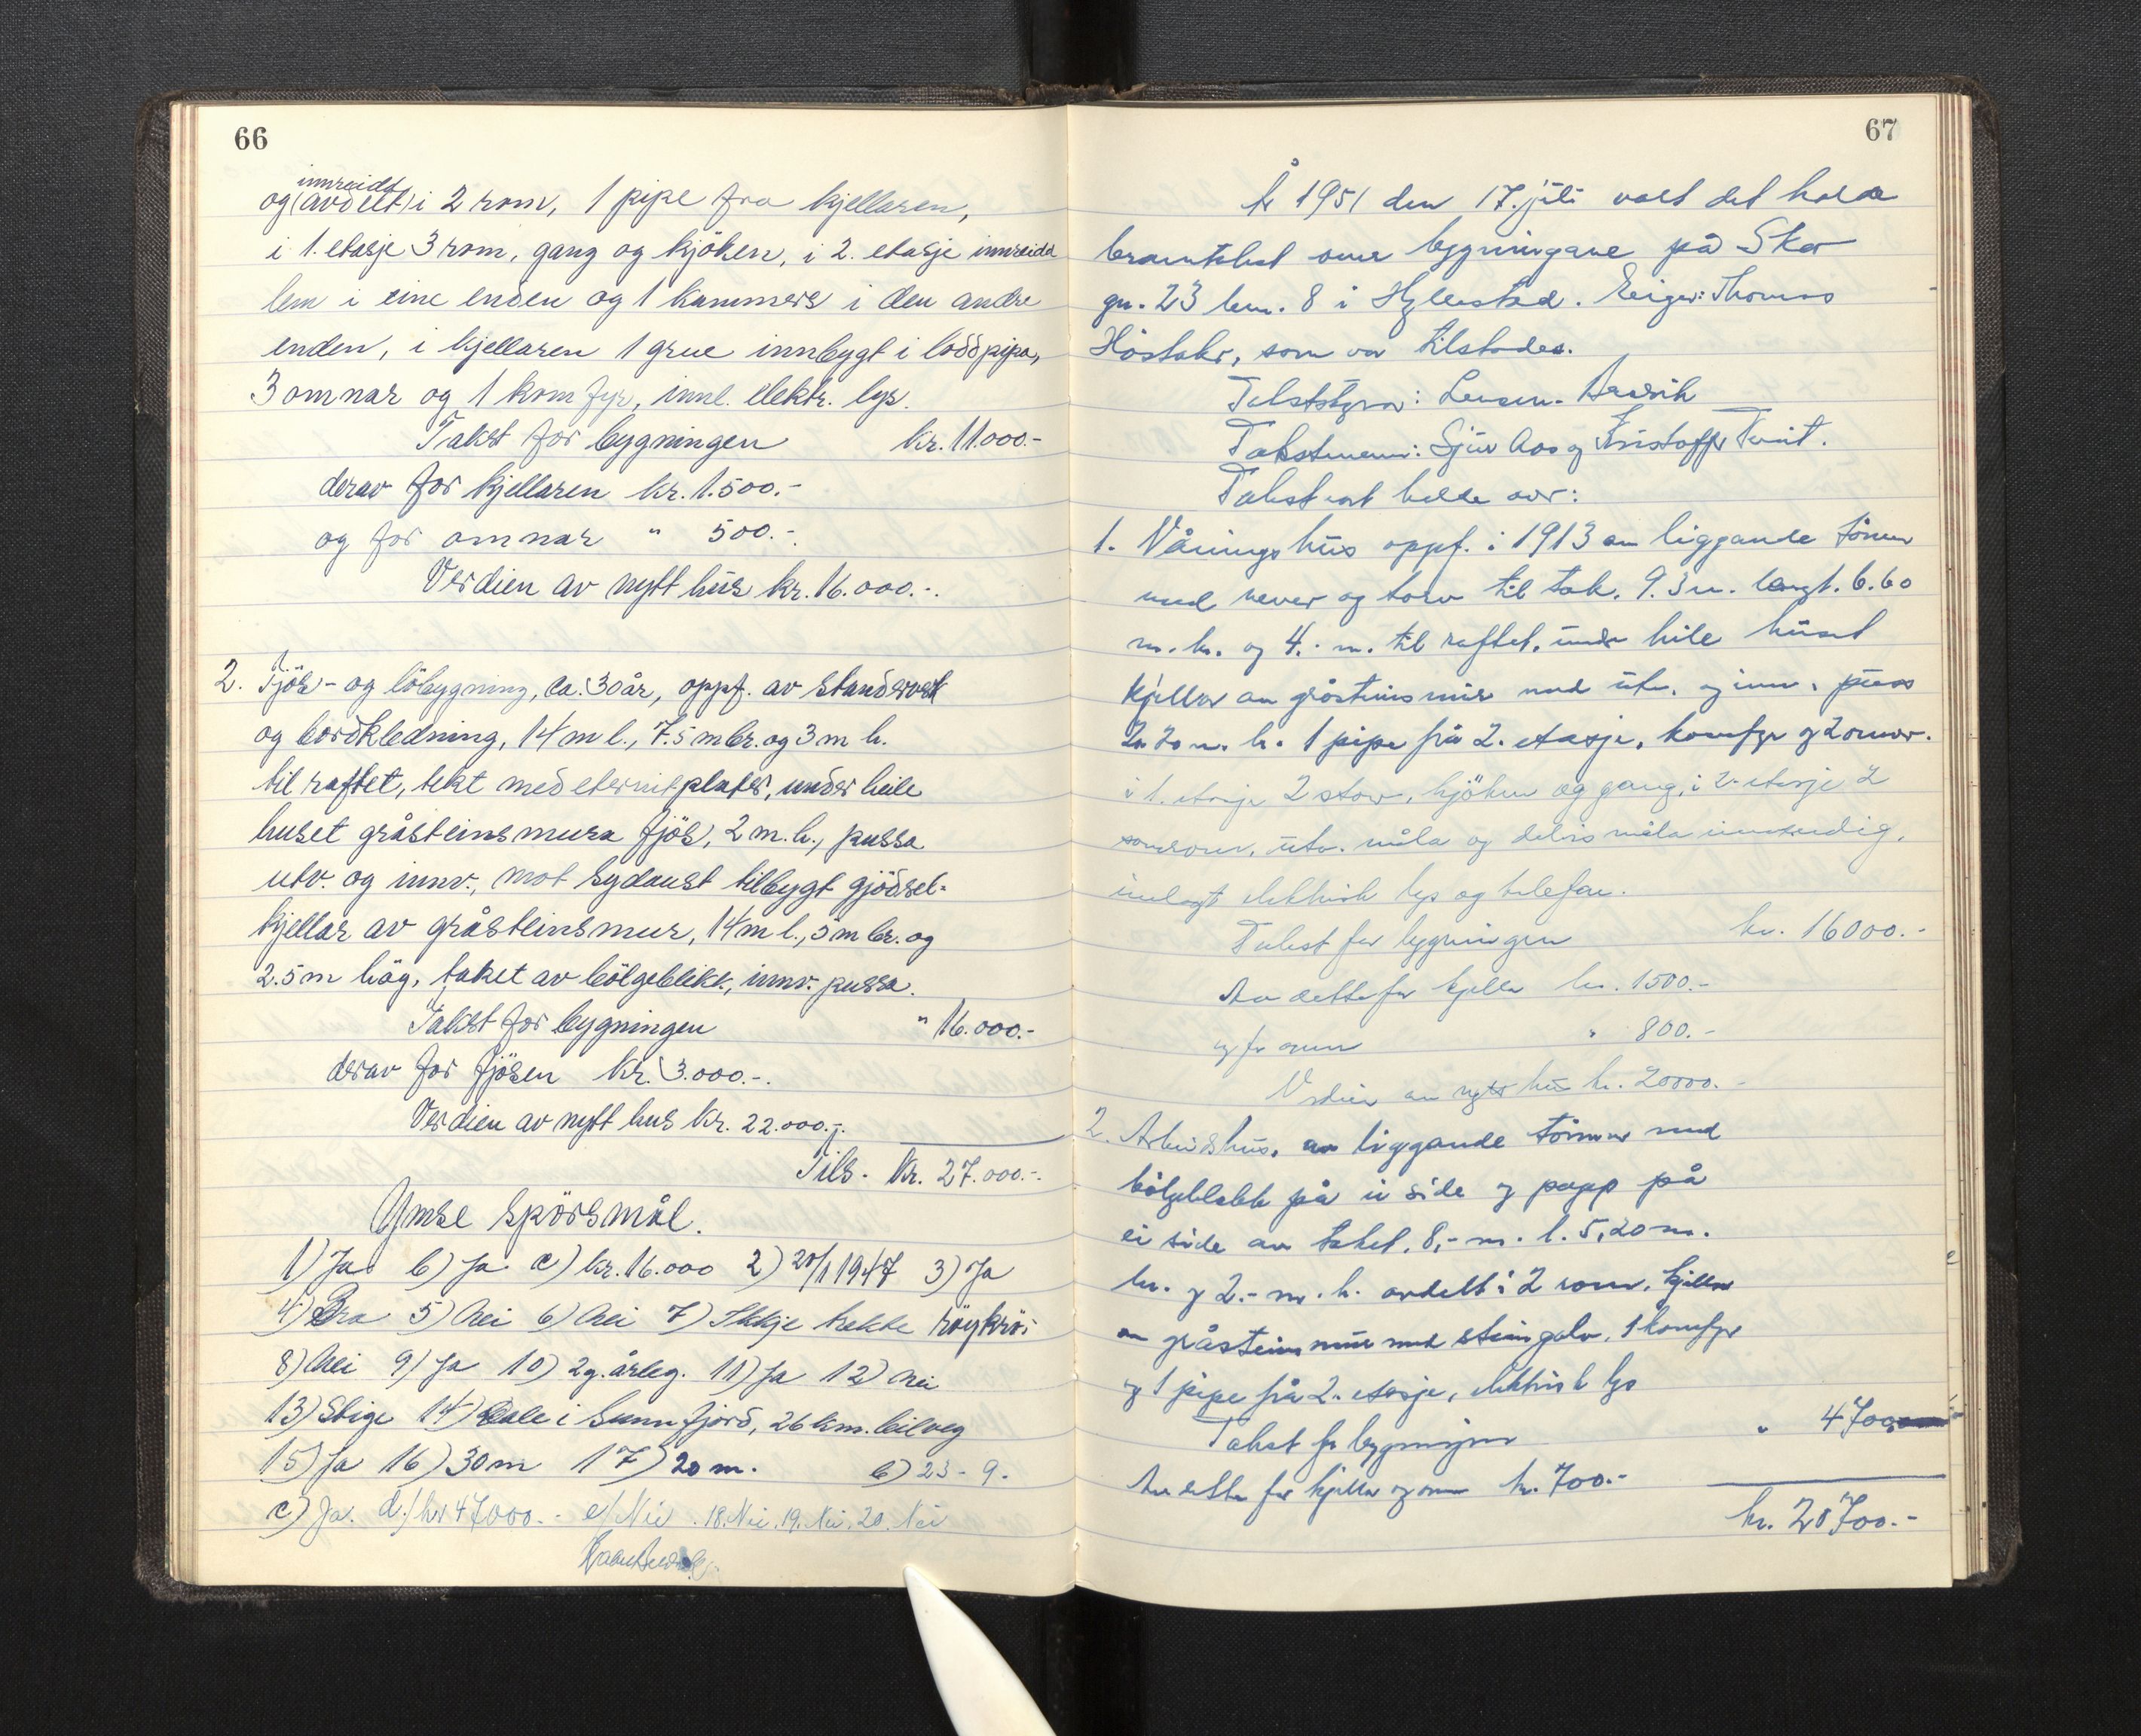 66
innreidt
og (avdelt) i 2 rom, 1 pipe fra kjellaren,
i 1. etasje 3 rom, gang og kjöken, i 2. etasje innreidd
lem i eine enden og 1 kammers i den andre
enden, i kjellaren 1 grue innbygt i loddpipa,
3 omnar og 1 komfyr, innl. elektr. lys.
Takst for bygningen kr. 11.000.-
derav for kjellaren kr. 1.500.-
og for omnar " 500.-
Verdien av nytt hus kr. 16.000.-.
2. Fjös- og löbygning, ca. 30 år, oppf. av standverk
og bordkledning, 14 m l., 7.5 m br. og 3 m h.
til raftet, tekt med eternitplater, under heile
huset gråsteinsmura fjös, 2 m. h., pussa
utv. og innv., mot sydaust tilbygt gjödsel-
kjellar av gråsteinsmur, 14 m l., 5 m br. og
2.5 m hög, taket av bölgeblikk, innv. pussa.
Takst for bygningen " 16.000.-
derav for fjösen kr. 3.000.-.
Verdien av nytt hus kr. 22.000.-.
Tils. kr. 27.000.-.
Ymse spörsmål.
1) Ja b) Ja c) kr. 16.000 2) 20/1 1947 3) Ja
4) Bra 5) Nei 6) Nei 7) Ikkje trekte röykrör
8) Nei 9) Ja 10) 2 g. årleg. 11) Ja 12) Nei
13) Stige 14) Dale i Sunnfjord, 26 km. bilveg
15) Ja 16) 30 m 17) 20 m. b) 23 - 9.
c) Ja. d./ kr 47000.- e/ Nei. 18. Nei. 19. Nei. 20. Nei
67
År 1951 den 17. juli vart det halde
branntakst over bygningane på Skor
gn. 23 br. 8 i Hyllestad. Eigar: Thomas
som var tilstades.
Takststyrar: Lensm.
Takstmenn: Sjur Aas og Kristoffer
Takst vart halde over:
1. Våningshus oppf. i 1913 av liggande tömmer
med never og torv til tak. 9.3 m. langt. 6.60
m. br. og 4.- m. til raftet, under heile huset
kjellar av gråsteinsmur med utv. og innv. puss
2.20 m. h. 1 pipe frå 2. etasje, komfyr og 2 omnar.
i 1. etasje 2 stover, kjöken og gang, i 2. etasje 2
soverom, utv. måla og delvis måla innvendig,
innlagt elektrisk lys og telefon.
Takst for bygningen kr. 16000.-
Av dette for kjellar kr. 1500.-
og for omnar " 800.-
Verdien av nytt hus kr. 20000.-
2. Arbeidshus, av liggande tömmer med
bölgeblekk på ei side og papp på
ei side av taket. 8,- m. l. 5,20 m.
br. og 2.- m. h. avdelt i 2 rom, kjellar
av gråsteinsmur med steingolv, 1 komfyr
og 1 pipe frå 2. etasje, elektrisk lys
Takst for bygningen " 4700
Av dette for kjellar og omn kr. 700.-
kr. 20700.-